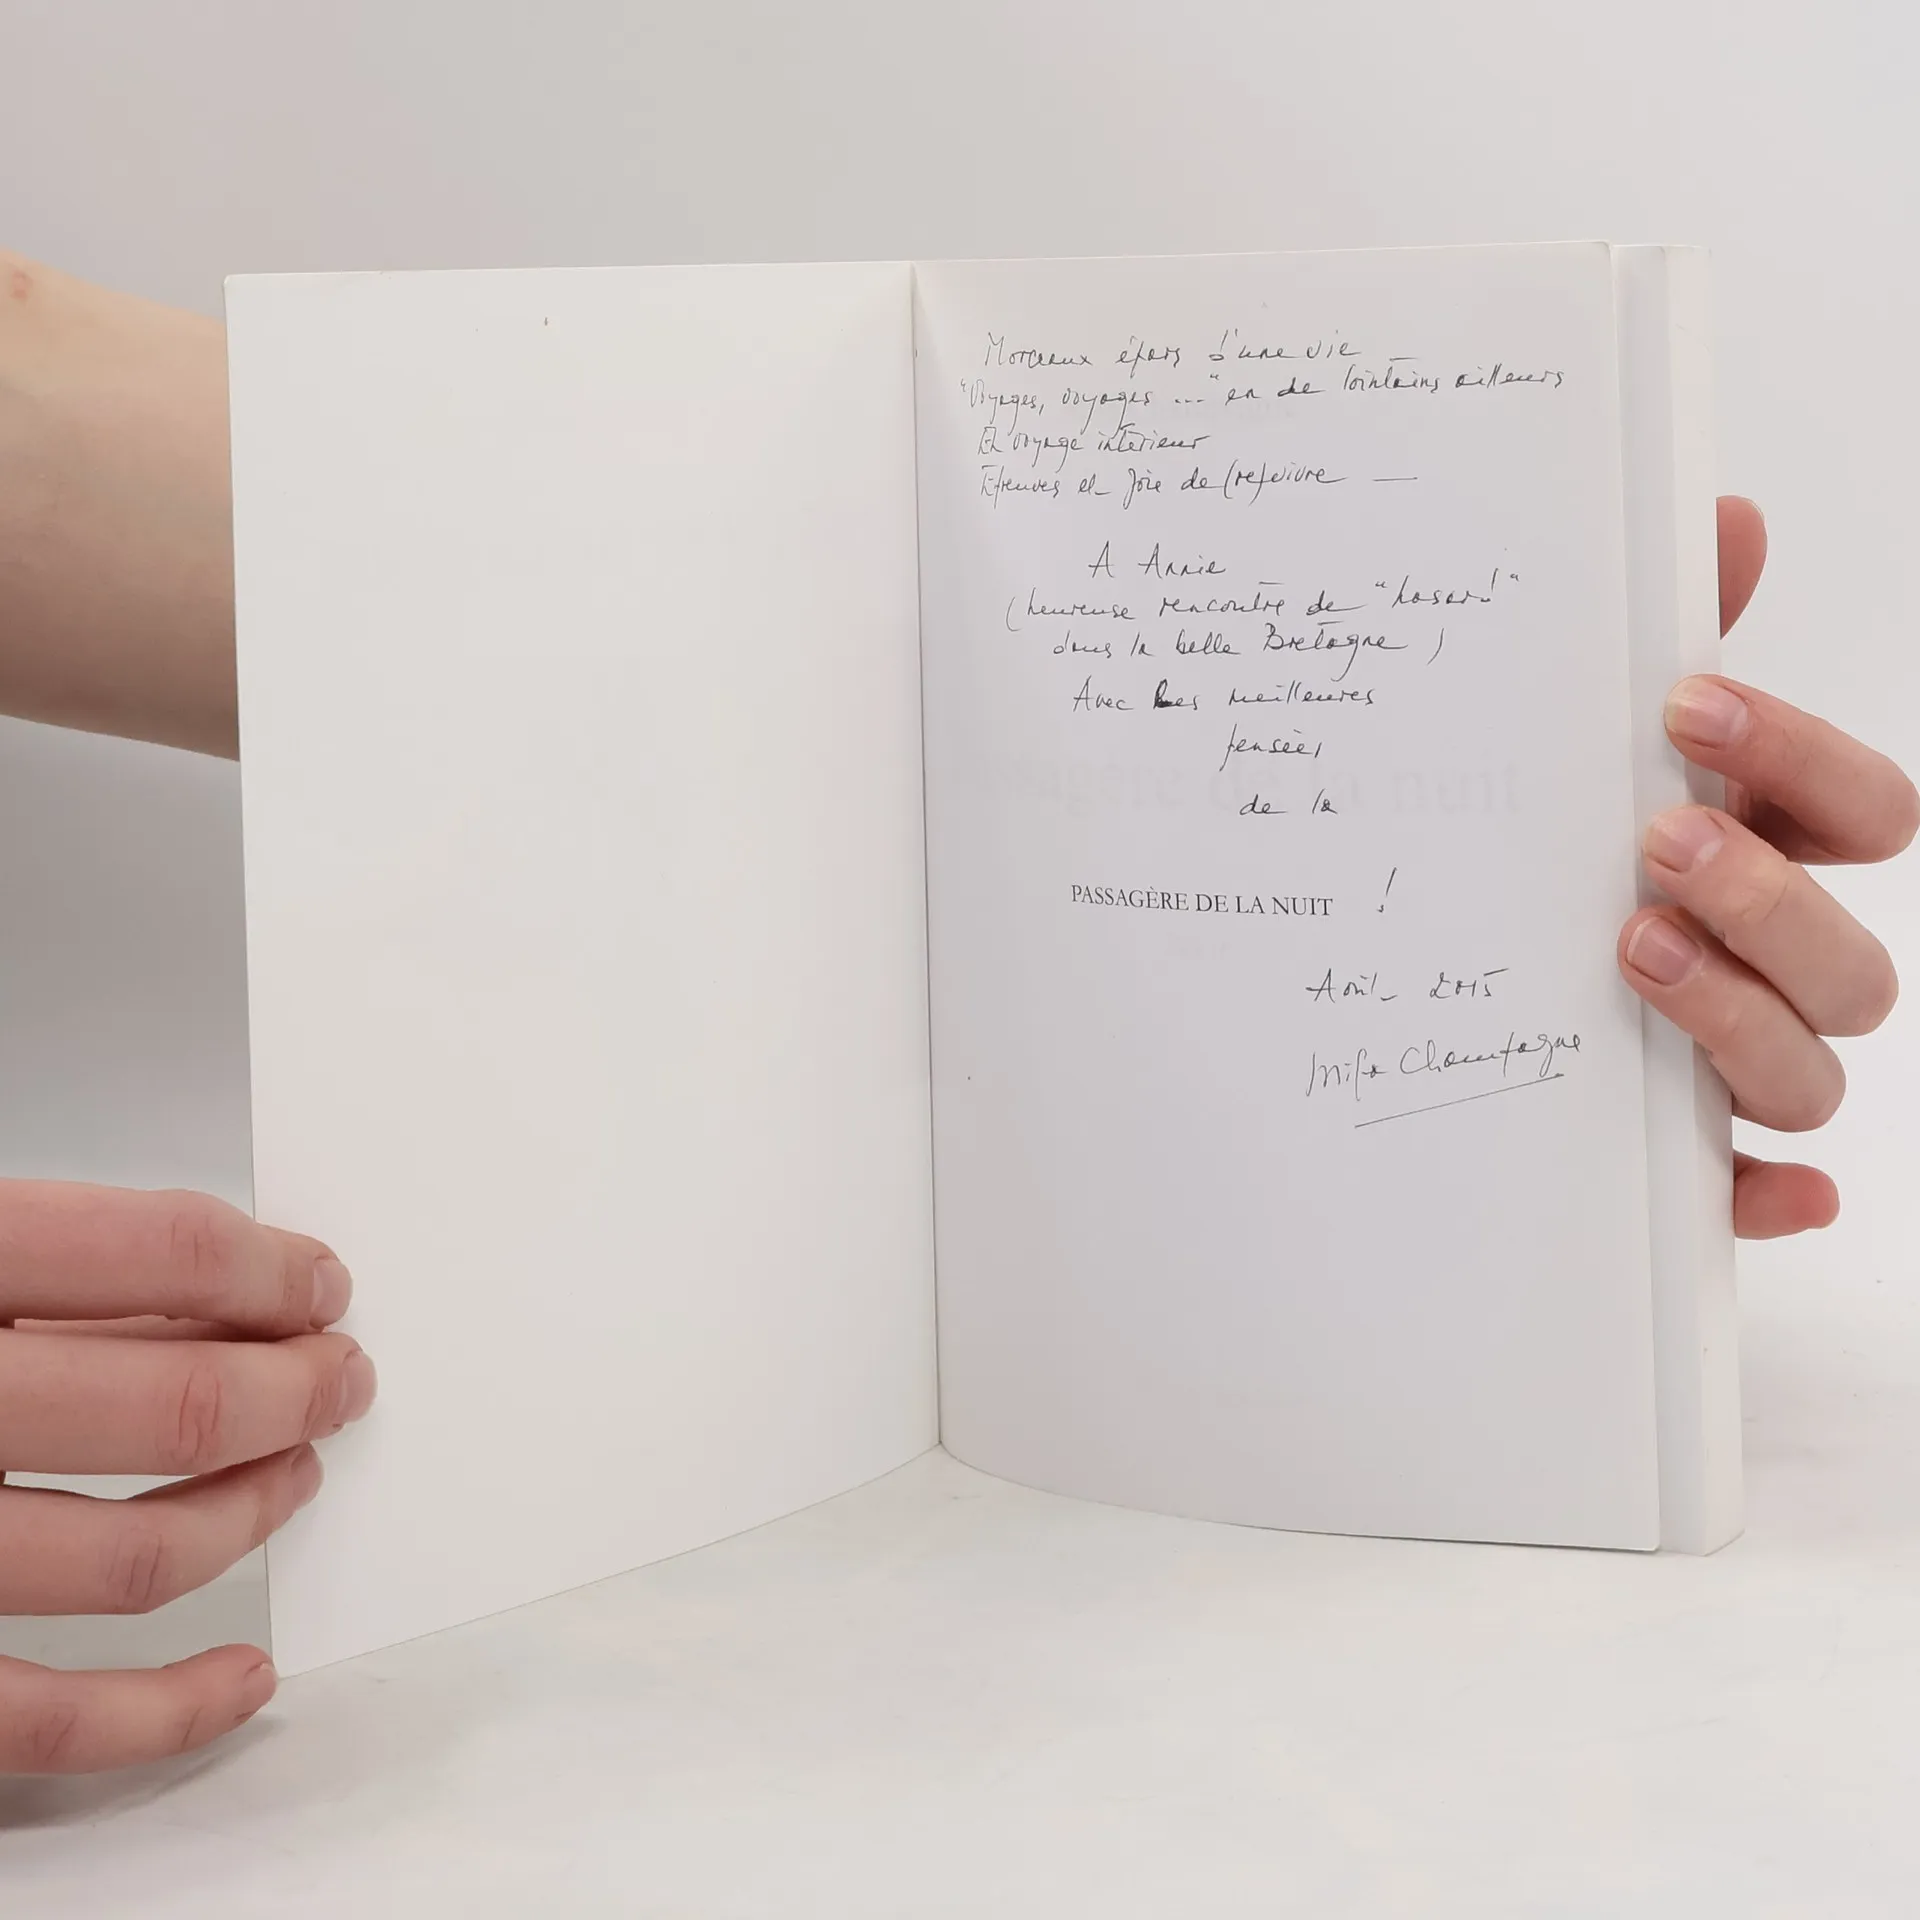 Morceaux épars d'une vie
"Voyages, voyages ..." en de lointains ailleurs
Et voyage intérieur
Épreuves et Joie de (re)vivre —
A Annie
(heureuse rencontre de "hasard"
dans la belle Bretagne)
Avec les meilleures
pensées
de la
PASSAGÈRE DE LA NUIT !
Août 2015
Champagne